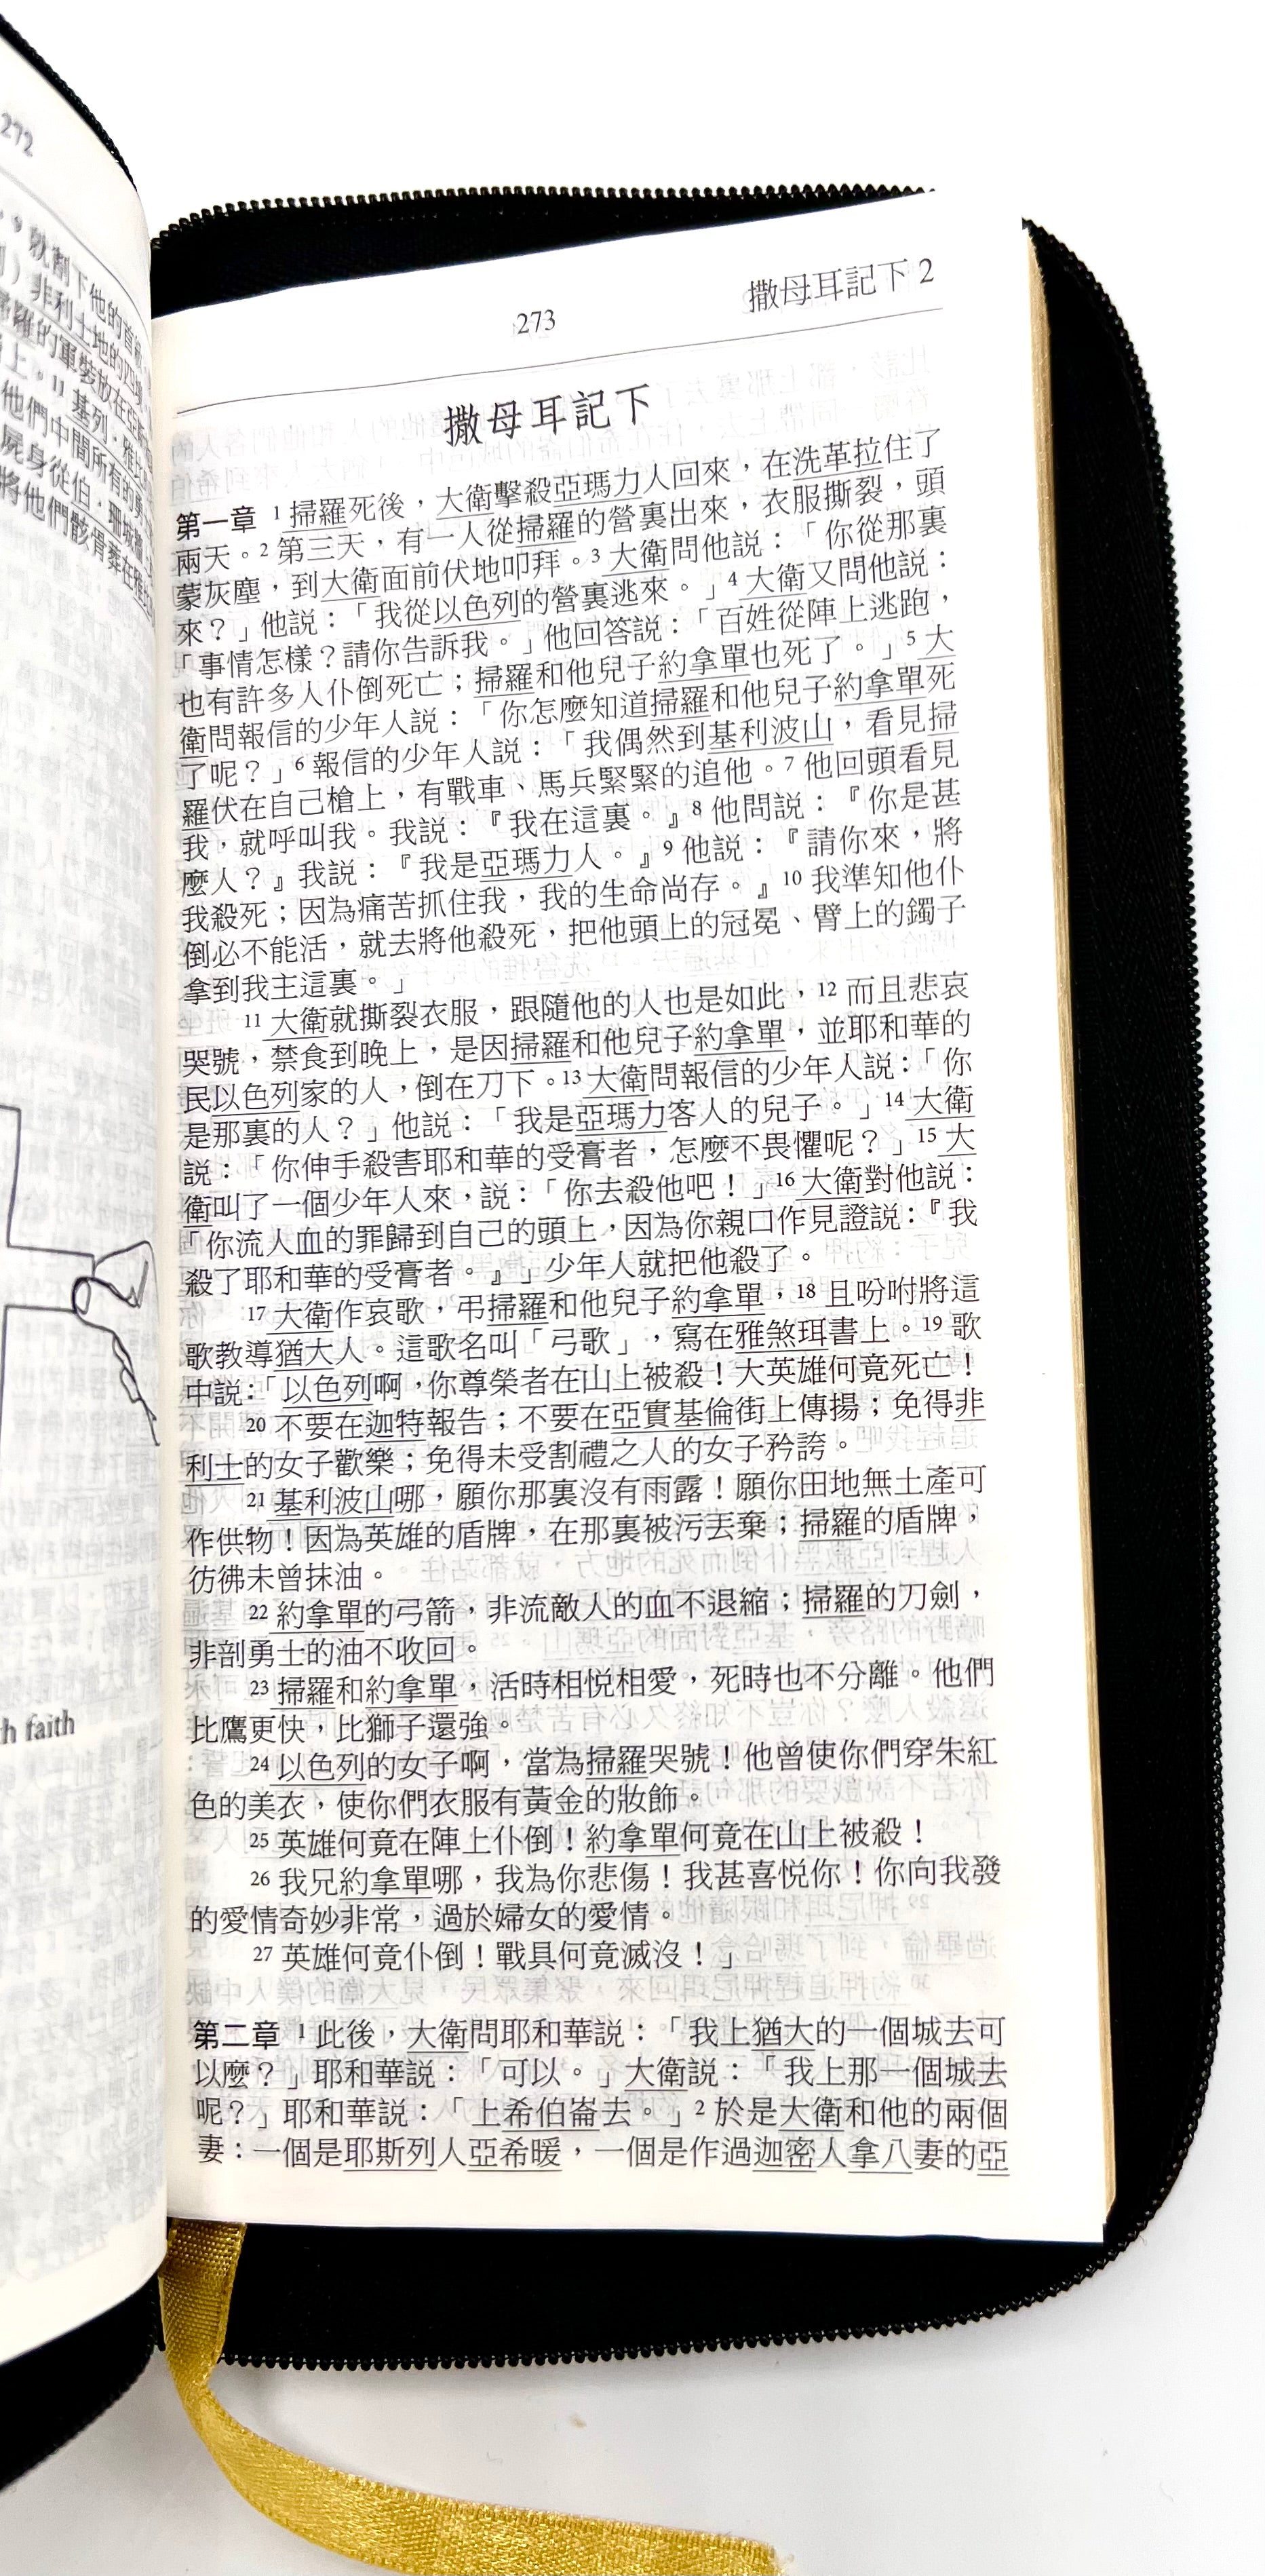 272
就割下他的首
非利士地的四
的軍裝放在亞斯
上。11 基列.雅比
他們中間所有的勇
屍身從伯.珊城牆
將他們骸骨葬在雅比
th faith
273
撒母耳記下 2
撒母耳記下
第一章 1 掃羅死後，大衛擊殺亞瑪力人回來，在洗革拉住了
兩天。2 第三天，有一人從掃羅的營裏出來，衣服撕裂，頭
蒙灰塵，到大衛面前伏地叩拜。3 大衛問他説：「你從那裏
來？」他説：「我從以色列的營裏逃來。」4 大衛又問他説：
「事情怎樣？請你告訴我。」他回答説：「百姓從陣上逃跑，
也有許多人仆倒死亡；掃羅和他兒子約拿單也死了。」5 大
衛問報信的少年人説：「你怎麼知道掃羅和他兒子約拿單死
了呢？」6 報信的少年人説：「我偶然到基利波山，看見掃
羅伏在自己槍上，有戰車、馬兵緊緊的追他。7 他回頭看見
我，就呼叫我。我説：『我在這裏。』8 他問説：『你是甚
麼人？』我説：『我是亞瑪力人。』9 他説：『請你來，將
我殺死；因為痛苦抓住我，我的生命尚存。』10 我準知他仆
倒必不能活，就去將他殺死，把他頭上的冠冕、臂上的鐲子
拿到我主這裏。」
11 大衛就撕裂衣服，跟隨他的人也是如此，12 而且悲哀
哭號，禁食到晚上，是因掃羅和他兒子約拿單，並耶和華的
民以色列家的人，倒在刀下。13 大衛問報信的少年人説：「你
是那裏的人？」他説：「我是亞瑪力客人的兒子。」14 大衛
説：「你伸手殺害耶和華的受膏者，怎麼不畏懼呢？」15 大
衛叫了一個少年人來，説：「你去殺他吧！」16 大衛對他説：
「你流人血的罪歸到自己的頭上，因為你親口作見證説：『我
殺了耶和華的受膏者。』」少年人就把他殺了。
17 大衛作哀歌，弔掃羅和他兒子約拿單，18 且吩咐將這
歌教導猶大人。這歌名叫「弓歌」，寫在雅煞珥書上。19 歌
中説：「以色列啊，你尊榮者在山上被殺！大英雄何竟死亡！
20 不要在迦特報告；不要在亞實基倫街上傳揚；免得非
利士的女子歡樂；免得未受割禮之人的女子矜誇。
21 基利波山哪，願你那裏沒有雨露！願你田地無土產可
作供物！因為英雄的盾牌，在那裏被污丟棄；掃羅的盾牌，
彷彿未曾抹油。
22 約拿單的弓箭，非流敵人的血不退縮；掃羅的刀劍，
非剖勇士的油不收回。
23 掃羅和約拿單，活時相悦相愛，死時也不分離。他們
比鷹更快，比獅子還強。
24 以色列的女子啊，當為掃羅哭號！他曾使你們穿朱紅
色的美衣，使你們衣服有黃金的妝飾。
25 英雄何竟在陣上仆倒！約拿單何竟在山上被殺！
26 我兄約拿單哪，我為你悲傷！我甚喜悦你！你向我發
的愛情奇妙非常，過於婦女的愛情。
27 英雄何竟仆倒！戰具何竟滅沒！」
第二章 1 此後，大衛問耶和華説：「我上猶大的一個城去可
以麼？」耶和華説：「可以。」大衛説：「我上那一個城去
呢？」耶和華説：「上希伯崙去。」2 於是大衛和他的兩個
妻：一個是耶斯列人亞希暖，一個是作過迦密人拿八妻的亞